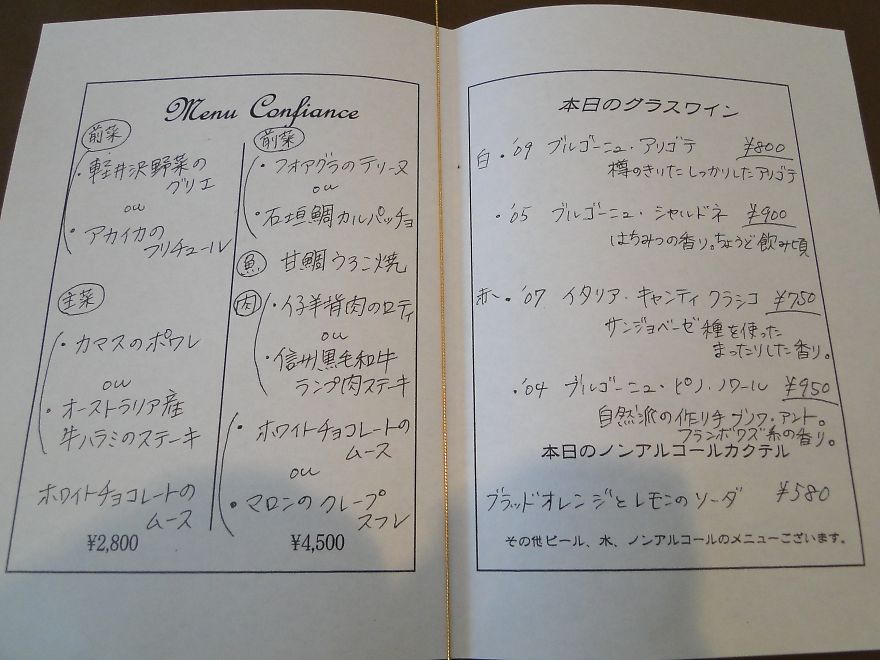 Menu Confiance
前菜
・軽井沢野菜の
グリエ
ou
・アカイカの
フリチュール
主菜
・カマスのポワレ
ou
・オーストラリア産
牛ハラミのステーキ
ホワイトチョコレートの
ムース
¥2,800
前菜
・フォアグラのテリーヌ
ou
・石垣鯛カルパッチョ
魚 甘鯛うろこ焼
肉 ・仔羊背肉のロティ
ou
・信州黒毛和牛
ランプ肉ステーキ
・ホワイトチョコレートの
ムース
ou
・マロンのクレープ
スフレ
¥4,500
本日のグラスワイン
白 ・'09 ブルゴーニュ・アリゴテ ¥800
樽のきいた しっかりしたアリゴテ
・'05 ブルゴーニュ・シャルドネ ¥900
はちみつの香り。ちょうど飲み頃
赤 ・'07 イタリア・キャンティ クラシコ ¥750
サンジョベーゼ種を使った
まったりした香り。
・'04 ブルゴーニュ・ピノ・ノワール ¥950
自然派の作り手 ブノワ・アント。
フランボワズ系の香り。
本日のノンアルコールカクテル
ブラッドオレンジとレモンのソーダ ¥580
その他ビール、水、ノンアルコールのメニューございます。